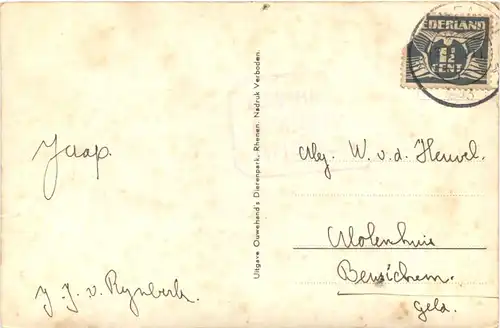 NEDERLAND
1½
CENT
Jaap.
J. J. v. Rynberk.
Uitgave Ouwehand's Dierenpark, Rhenen. Nadruk Verboden.
W. v. d. Heuvel.
Molenhuis
Beusichem.
Geld.